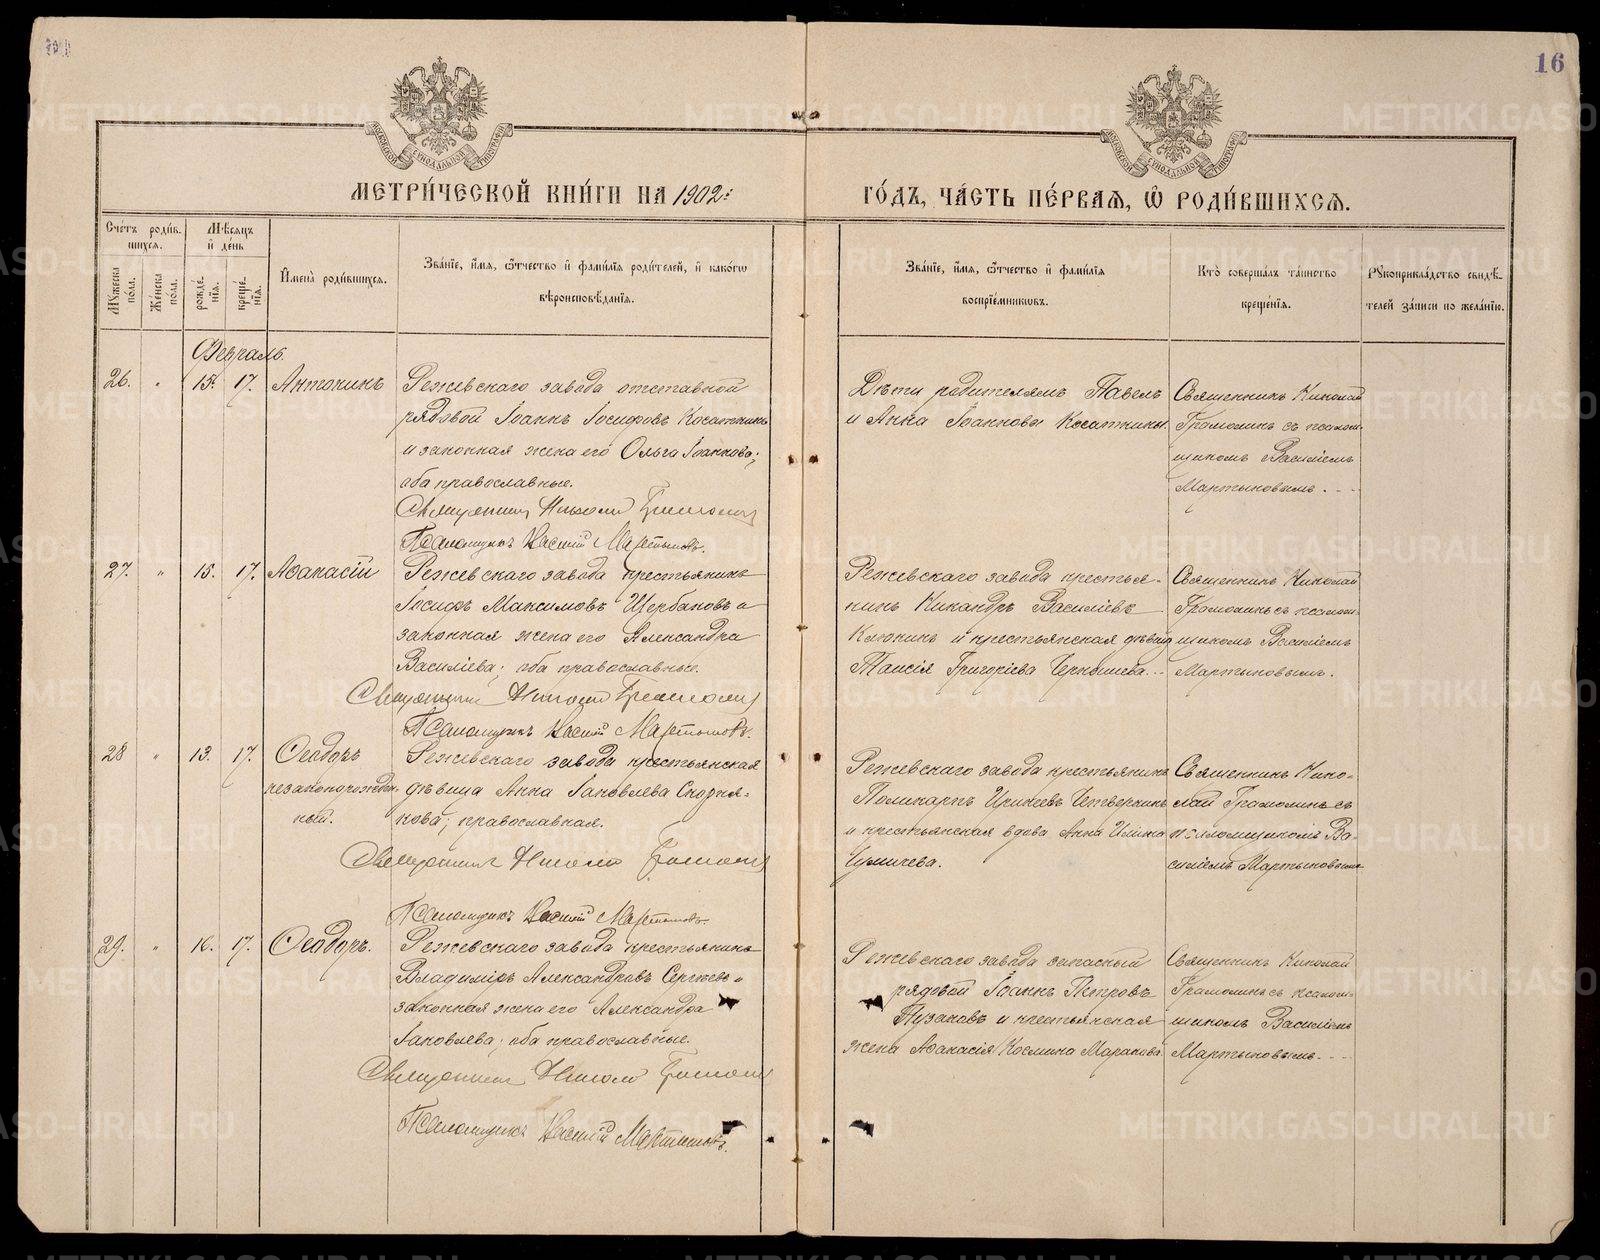 16
МОСКОВСКОЙ СѴНОДАЛЬНОЙ ТИПОГРАФІИ
МОСКОВСКОЙ СѴНОДАЛЬНОЙ ТИПОГРАФІИ
МЕТРИ́ЧЕСКОЙ КНИ́ГИ НА 1902:
ГО́ДЪ, ЧА́СТЬ ПЕ́РВАѦ, Ѽ РОДИ́ВШИХСѦ.
Сче́тъ роди́в-
шихся.
Мѣ́сяцъ
и҆ де́нь
Мꙋ́жеска по́ла.
Же́нска по́ла.
рожде́-
нїя.
креще́-
нїя.
И҆мена̀ роди́вшихся.
Зва́нїе, и҆́мя, ѻ҆́тчество и҆ фами́лїя роди́телей, и҆ како́гѡ
вѣроисповѣ́данїя.
Зва́нїе, и҆́мя, ѻ҆́тчество и҆ фами́лїя
воспрїе́мниковъ.
Кто̀ соверша́лъ та́инство
креще́нїя.
Рꙋкоприкла́дство свидѣ́-
телей за́писи по жела́нїю.
Февраль.
26. " 15. 17. Антонинъ
Режевскаго завода отставной
рядовой Іоаннъ Іосифовъ Косаткинъ
и законная жена его Ольга Іоаннова;
оба православные.
Священникъ Николай Грамолинъ
Псаломщикъ Василій Мартыновъ.
Дѣти родителямъ Павелъ
и Анна Іоанновы Косаткины.
Священникъ Николай
Грамолинъ съ псалом-
щикомъ Василіемъ
Мартыновымъ.
27. " 15. 17. Аѳанасій
Режевскаго завода крестьянинъ
Іосифъ Максимовъ Щербаковъ и
законная жена его Александра
Василіева; оба православные.
Священникъ Николай Грамолинъ
Псаломщикъ Василій Мартыновъ.
Режевскаго завода крестья-
нинъ Никандръ Василіевъ
Клюкинъ и крестьянская дѣвица
Таисія Григоріева Чернышева.
Священникъ Николай
Грамолинъ съ псалом-
щикомъ Василіемъ
Мартыновымъ.
28 " 13. 17. Ѳеодоръ
незаконорожден-
ный.
Режевскаго завода крестьянская
дѣвица Анна Іаковлева Скорня-
кова; православная.
Священникъ Николай Грамолинъ
Псаломщикъ Василій Мартыновъ.
Режевскаго завода крестьянинъ
Поликарпъ Иринеевъ Четверкинъ
и крестьянская вдова Анна Ильина
Чумичева.
Священникъ Нико-
лай Грамолинъ съ
псаломщикомъ Ва-
силіемъ Мартыновымъ
29. " 16. 17. Ѳеодоръ.
Режевскаго завода крестьянинъ
Владиміръ Александровъ Сергѣевъ и
законная жена его Александра
Іаковлева; оба православные.
Священникъ Николай Грамолинъ
Псаломщикъ Василій Мартыновъ.
Режевскаго завода запасный
рядовой Іоаннъ Петровъ
Пузановъ и крестьянская
жена Аѳанасія Космина Маракова
Священникъ Николай
Грамолинъ съ псалом-
щикомъ Василіемъ
Мартыновымъ.
METRIKI.GASO-URAL.RU